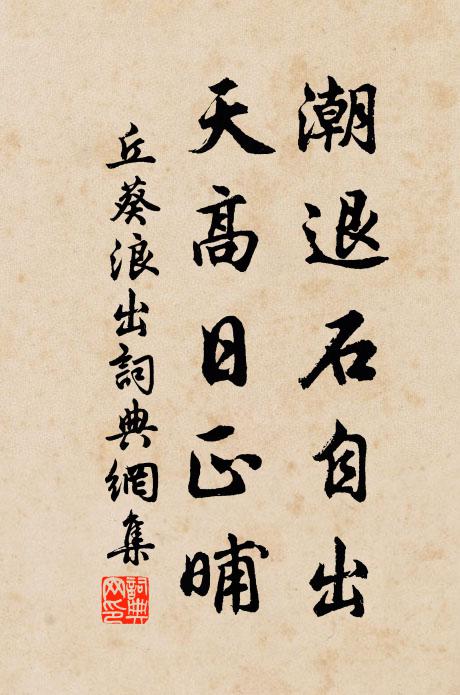 潮退石自出
天高日正晡
丘葵浪出詞典網集
詞典網印